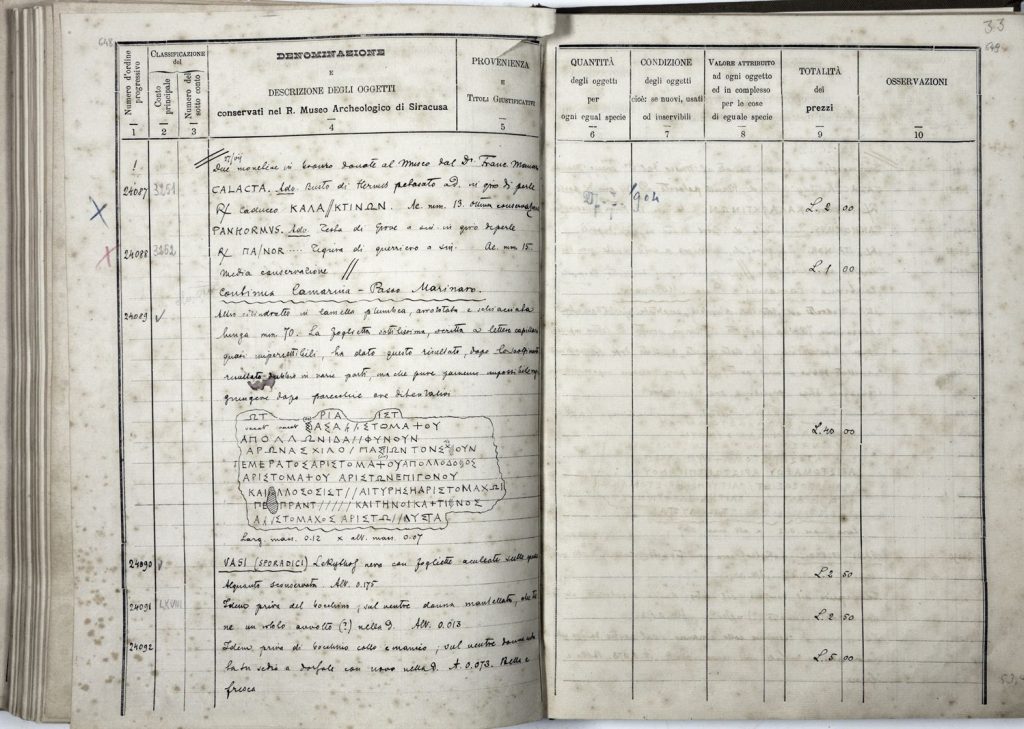 648
33
649
Numero d'ordine progressivo
CLASSIFICAZIONE del
Conto principale
Numero del sotto conto
DENOMINAZIONE
E
DESCRIZIONE DEGLI OGGETTI
conservati nel R. Museo Archeologico di Siracusa
PROVENIENZA
E
TITOLI GIUSTIFICATIVI
QUANTITÀ
degli oggetti
per
ogni egual specie
CONDIZIONE
degli oggetti
cioè: se nuovi, usati
od inservibili
VALORE ATTRIBUITO
ad ogni oggetto
ed in complesso
per le cose
di eguale specie
TOTALITÀ
dei
prezzi
OSSERVAZIONI
1 2 3 4 5 6 7 8 9 10
Due monetine in bronzo donate al Museo dal Dr. Franc.
24087 3251 CALACTA. Ado. Busto di Hermes petasato ad. in giro di perle
R/ Caduceo ΚΑΛΑ//ΚΤΙΝΩΝ. Ae. mm. 13. ottima
1904
L. 2 00
PANHORMVS. Ado. Testa di Giove a sin. in giro di perle
24088 3252 R/ ΠΑ/ΝΟR .... Figura di guerriero a sin. Ae. mm 15
media conservazione //
L. 1 00
Continua Camarina - Passo Marinaro.
24089 Altro cilindretto in lamella plumbea, arrotolata e schiacciata
lunga mm. 70. La foglietta sottilissima, scritta a lettere capillari
quasi impercettibili, ha dato questo risultato, dopo
risultato dubbio in varie parti, ma che pure
dopo parecchie ore di tentativi
ΩΤ ΡΙΑ ΙΣΤ
vacat vacat ΑΣΑ//ΣΤΟΜΑ+ΟΥ
ΑΠΟΛΛΩΝΙΔΑ//ΦΥΝΟΥΝ
L. 40 00
ΑΡΩΝΑΣΧΙΛΟ/ΠΑΣΙΩΝ ΤΟΝΣ ΟΥΝ
ΕΜΕΡΑΤΟΣΑΡΙΣΤΟΜΑ+ΟΥΑΠΟΛΛΟΔΟΡΟΣ
ΑΡΙΣΤΟΜΑ+ΟΥ ΑΡΙΣΤΩΝΕΠΙΓΟΝΟΥ
ΚΑΙ ΛΛΟΣΟΣΙΣΤ//ΑΙΤΥΡΗΣΗΑΡΙΣΤΟΜΑΧΩΙ
ΠΕ ΠΡΑΝΤ///// ΚΑΙΤΗΝΟΙΚΑ+ΤΙ ΝΟΣ
ΑΡ/ΣΤΟΜΑΧΟΣ ΑΡΙΣΤΩ//ΛΥΣΤΑ
Larg. mass. 0.12 x alt. mass. 0.07
24090 VASI (SPORADICI) Lekythos nera con fogliette
Alquanto sconservata. Alt. 0.175
L. 2 50
24091 Idem priva del bocchino; sul ventre donna mantellata, che tie
ne un rotolo avvolto (?) nella d. Alt. 0.013
L. 2 50
24092 Idem, priva di bocchino collo e manico; sul ventre donna
sedia a dorsale con uovo nella d. A. 0.073. Bella e
fresca
L. 5 00